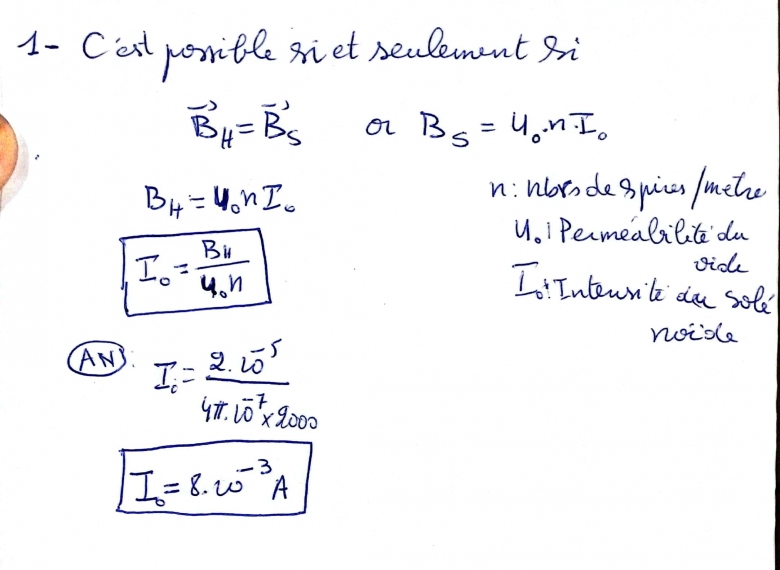 1- C'est possible si et seulement si
$\vec{B}_H = \vec{B}_S$ or $B_S = \mu_0 \cdot n \cdot I_0$
$B_H = \mu_0 n I_0$
n : nbrs de spires/metre
$I_0 = \frac{B_H}{\mu_0 n}$
$\mu_0$ : Permeabilité du
vide
$I_0$ : Intensite du solé
noïde
AN : $I_0 = \frac{2.10^{-5}}{4\pi.10^{-7} \times 2000}$
$I_0 = 8.10^{-3} A$